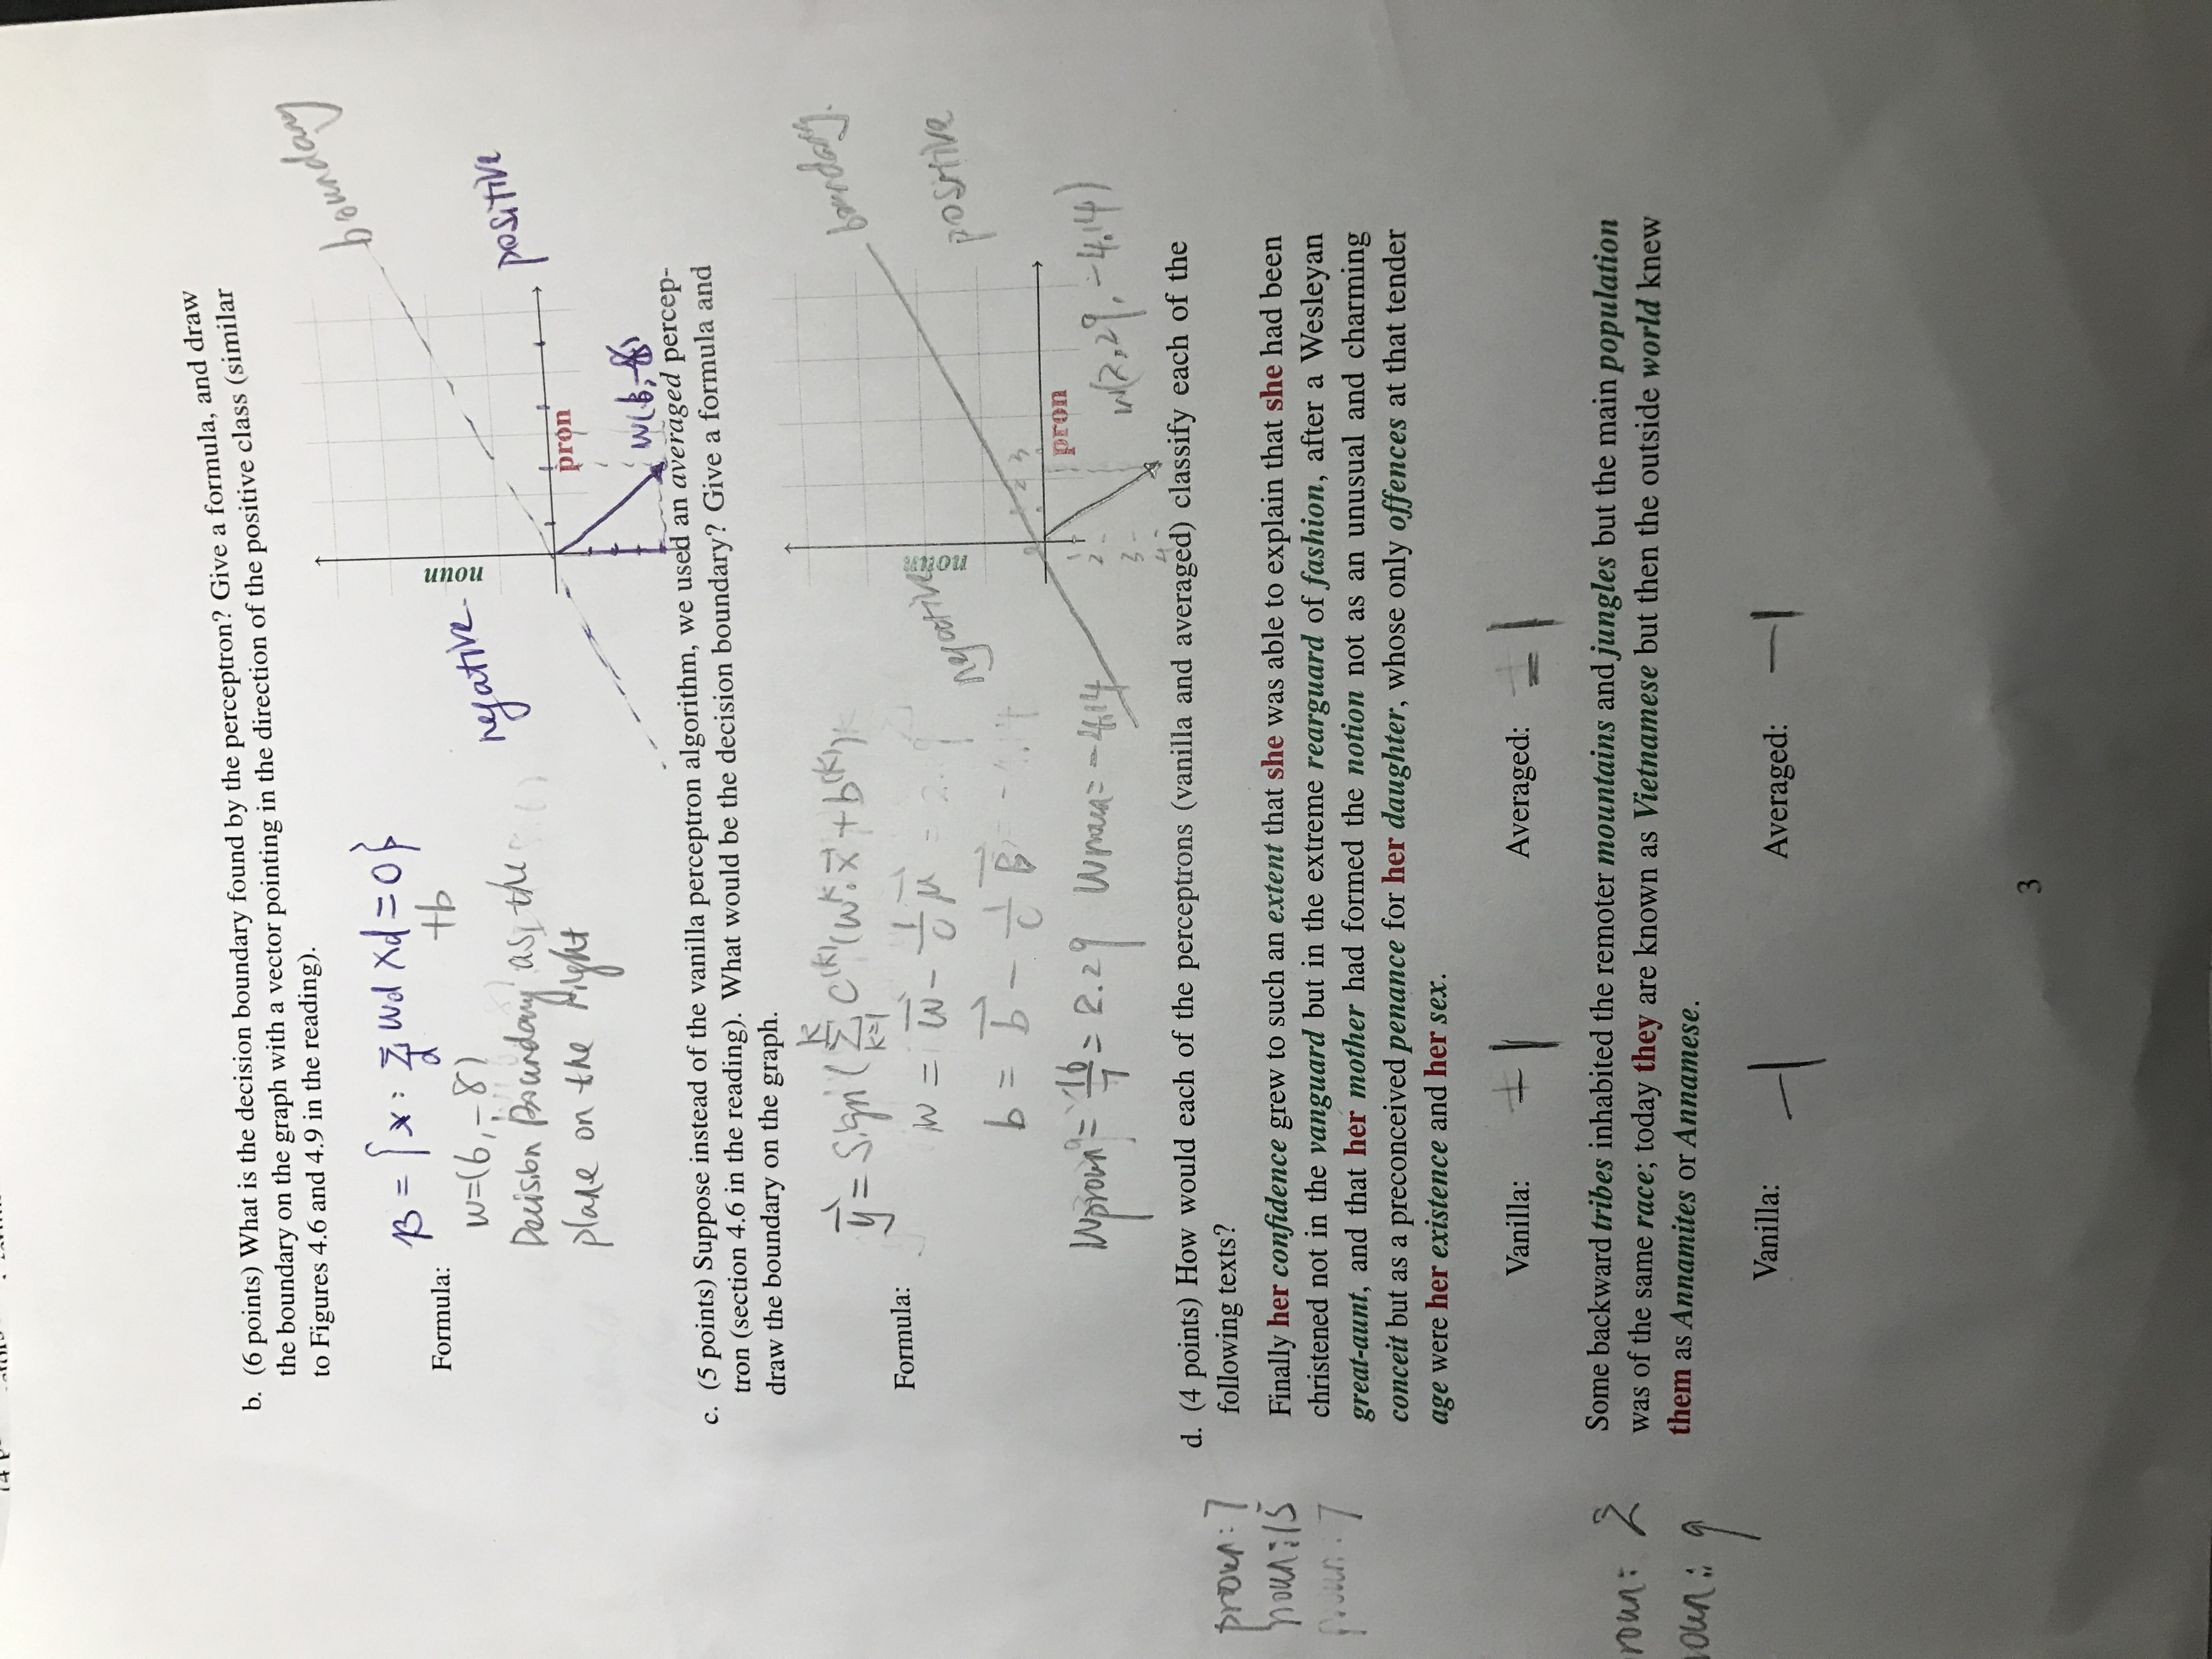 b. (6 points) What is the decision boundary found by the perceptron? Give a formula, and draw
the boundary on the graph with a vector pointing in the direction of the positive class (similar
to Figures 4.6 and 4.9 in the reading).
boundary
β = {x : Σ_d wd xd = 0}
+b
Formula:
noun
negative
positive
w=(6,-8)
Decision Boundary as the
plane on the right
pron
w(6,-8)
c. (5 points) Suppose instead of the vanilla perceptron algorithm, we used an averaged percep-
tron (section 4.6 in the reading). What would be the decision boundary? Give a formula and
draw the boundary on the graph.
boundary.
y = Sign(Σ_{k=1}^{K} C^(k)(w^k · x + b^(k))
Formula:
noun
negative
positive
w = w - 1/c μ
b = b - 1/c β
2 3
pron
1
2
3
4
Wproun = 16/7 = 2.29 Wnoun = -4.14
w(2.29, -4.14)
d. (4 points) How would each of the perceptrons (vanilla and averaged) classify each of the
following texts?
proun: 7
noun: 15
Finally her confidence grew to such an extent that she was able to explain that she had been
christened not in the vanguard but in the extreme rearguard of fashion, after a Wesleyan
great-aunt, and that her mother had formed the notion not as an unusual and charming
conceit but as a preconceived penance for her daughter, whose only offences at that tender
age were her existence and her sex.
Vanilla: -1 Averaged: -1
roun: 2
oun: 9
Some backward tribes inhabited the remoter mountains and jungles but the main population
was of the same race; today they are known as Vietnamese but then the outside world knew
them as Annamites or Annamese.
Vanilla: -1 Averaged: -1
3